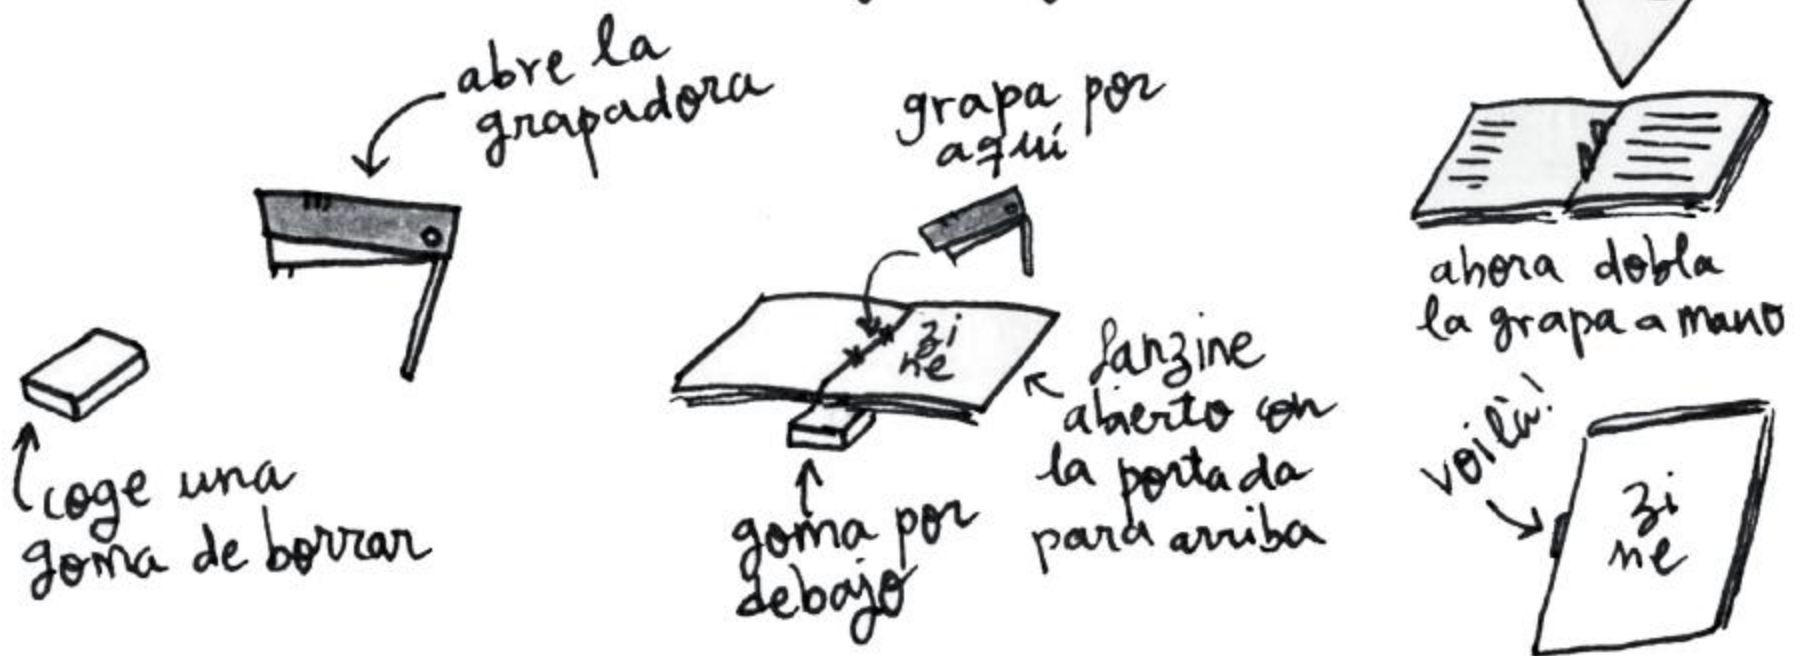 abre la
grapadora
coge una
goma de borrar
grapa por
aquí
zi
ne
goma por
debajo
fanzine
abierto con
la portada
para arriba
ahora dobla
la grapa a mano
voilà!
zi
ne